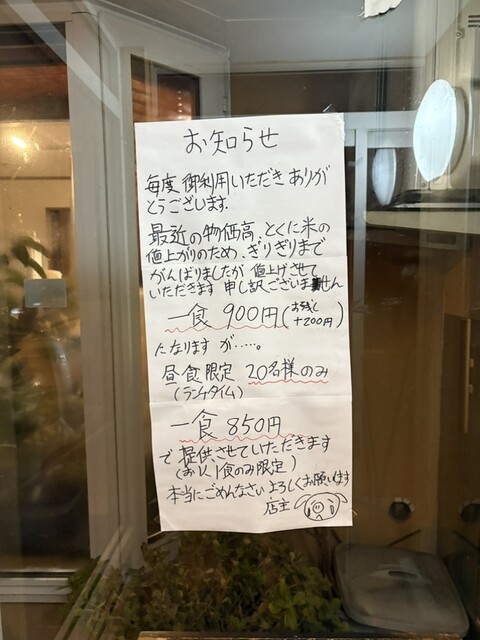 お知らせ
毎度 御利用いただき ありが
とうございます.
最近の物価高、とくに米の
値上がりのため、ぎりぎりまで
がんばりましたが 値上げさせて
いただきます 申し訳ございません
一食 900円(お残し
+200円)
になりますが……。
昼食限定 20名様のみ
(ランチタイム)
一食 850円
で提供させていただきます
1食のみ限定)
本当にごめんなさい よろしくお願いします
店主